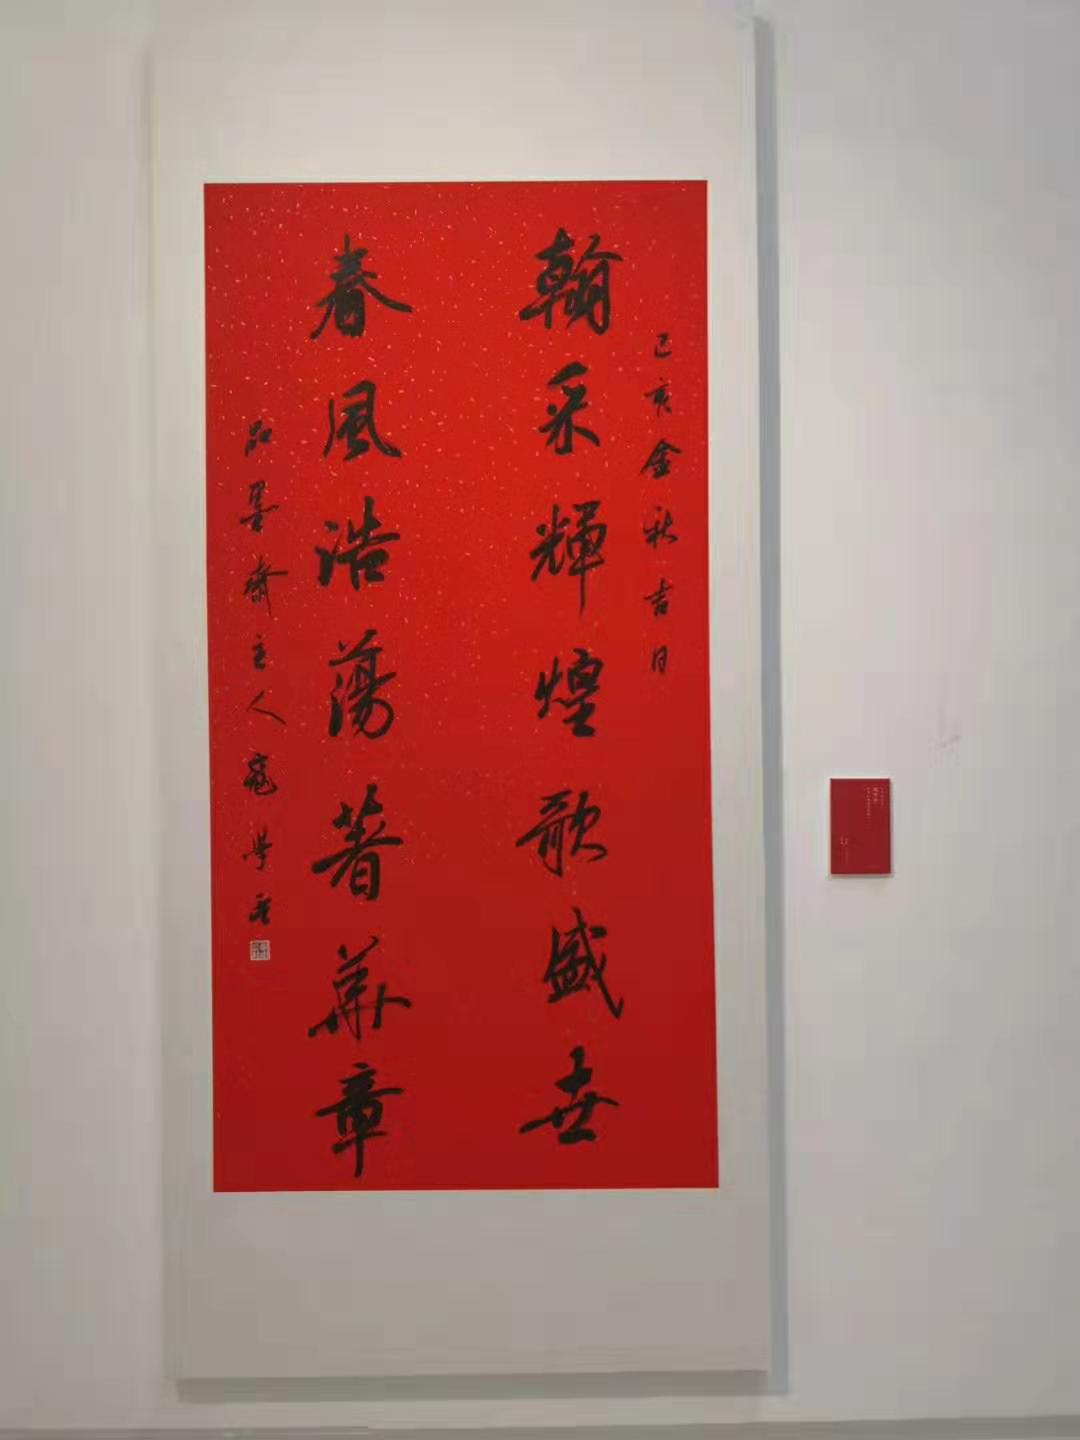 己亥金秋吉日
翰采輝煌歌盛世
春風浩蕩著華章
品墨齋主人寇學臣